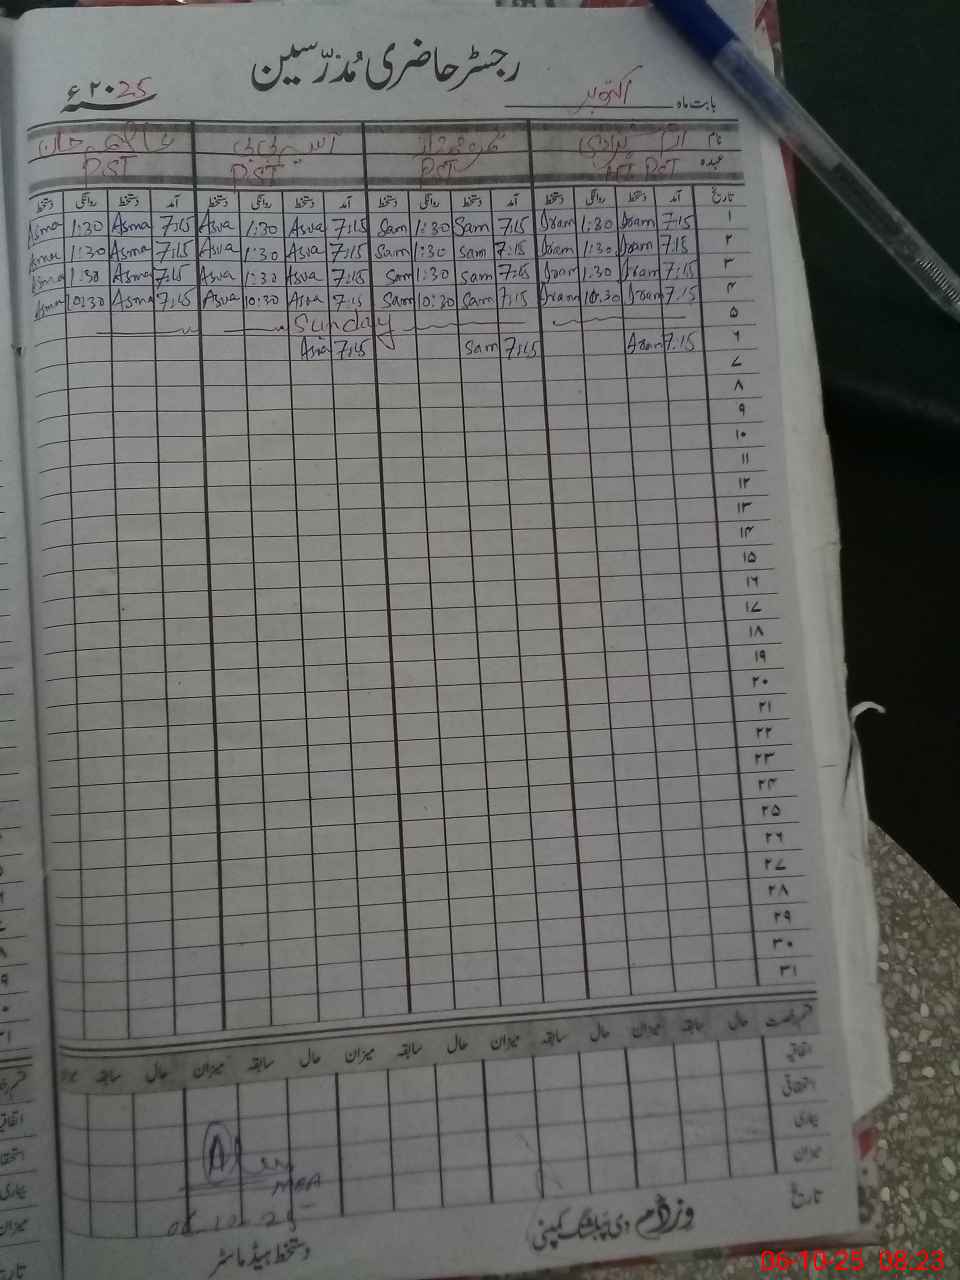 رجسٹر حاضری مُدرّسین
بابت ماہ اکتوبر سنہ ۲۰25ء
نام
عہدہ PST PST PST
تاریخ آمد دستخط روانگی دستخط آمد دستخط روانگی دستخط آمد دستخط روانگی دستخط آمد دستخط روانگی دستخط
۱ 7:15 Aram 1:30 Aram 7:15 Sam 1:30 Sam 7:15 Asva 1:30 Asva 7:15 Asma 1:30 Asma
۲ 7:15 Aram 1:30 Aram 7:15 Sam 1:30 Sam 7:15 Asva 1:30 Asva 7:15 Asma 1:30 Asma
۳ 7:15 Aram 1:30 Aram 7:15 Sam 1:30 Sam 7:15 Asva 1:30 Asva 7:15 Asma 1:30 Asma
۴ 7:15 Aram 10:30 Aram 7:15 Sam 10:30 Sam 7:15 Asva 10:30 Asva 7:15 Asma 10:30 Asma
۵ Sunday
۶ 7:15 Aram 7:15 Sam 7:15 Asva
۷
۸
۹
۱۰
۱۱
۱۲
۱۳
۱۴
۱۵
۱۶
۱۷
۱۸
۱۹
۲۰
۲۱
۲۲
۲۳
۲۴
۲۵
۲۶
۲۷
۲۸
۲۹
۳۰
۳۱
قسم رخصت حال سابقہ میزان حال سابقہ میزان حال سابقہ میزان حال سابقہ
اتفاقیہ
استحقاقی
بیماری
میزان
تاریخ
06-10-25
دستخط ہیڈ ماسٹر
دی پبلشنگ کمپنی
06-10-25 08:23